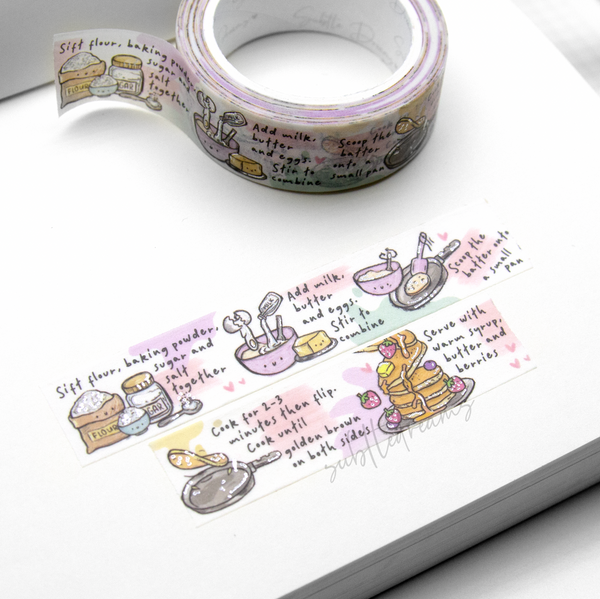 Subtle Dreams
Sift flour, baking powder,
sugar and
salt
together
FLOUR
Add milk,
butter
and eggs.
Stir to
combine
Scoop the
batter
onto a
small pan
Add milk,
butter
and eggs.
Stir to
combine
MILK
Scoop the
batter onto
a small
pan
Sift flour, baking powder,
sugar and
salt
together
FLOUR
Cook for 2-3
minutes then flip.
Cook until
golden brown
on both sides
Serve with
warm syrup,
butter and
berries
subtledreamz